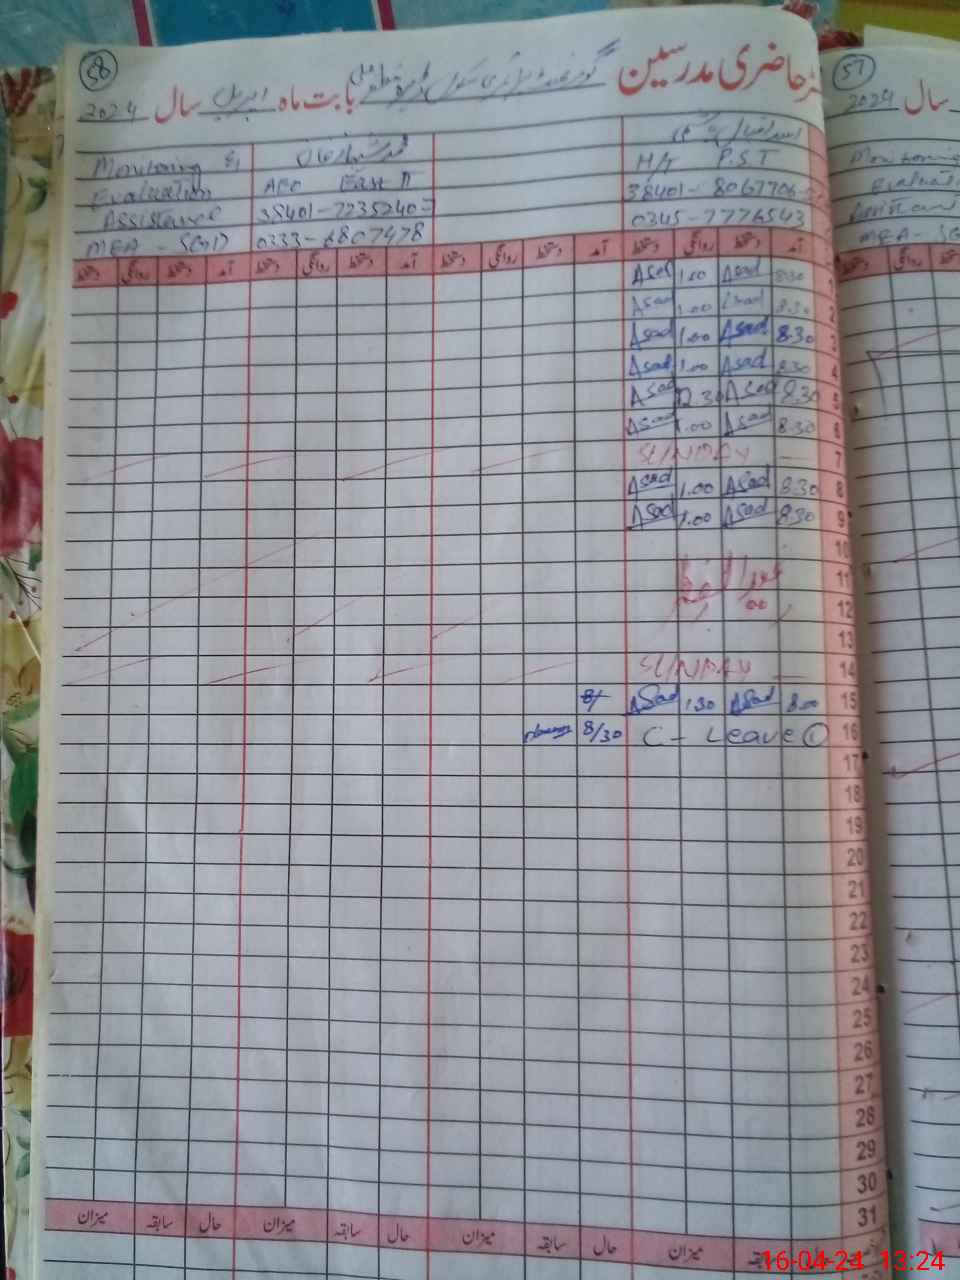 58
رجسٹر حاضری مدرسین گورنمنٹ پرائمری سکول بابت ماہ اپریل سال 2024
Monitoring & محمد شہباز خان
H/T P.S.T
Evaluation AEO East II 38401-8067706-
Assistance 38401-7235240- 0345-7776543
MEA - SGD 0333-6807478
آمد دستخط روانگی دستخط آمد دستخط روانگی دستخط آمد دستخط روانگی دستخط آمد دستخط روانگی دستخط
1 8:30 Asad 1.00 Asad
2 8.30 Asad 1.00 Asad
3 8.30 Asad 1.00 Asad
4 8.30 Asad 1.00 Asad
5 8.30 Asad 12.30 Asad
6 8.30 Asad 1.00 Asad
7 SUNDAY
8 8.30 Asad 1.00 Asad
9 8.30 Asad 1.00 Asad
10
11 عیدالفطر
12
13
14 SUNDAY
15 8.00 Asad 1.30 Asad 8/
16 C - Leave 1 8/30
17
18
19
20
21
22
23
24
25
26
27
28
29
30
31
حال سابقہ میزان حال سابقہ میزان حال سابقہ میزان میزان
57
سال 2024
16-04-24 13:24